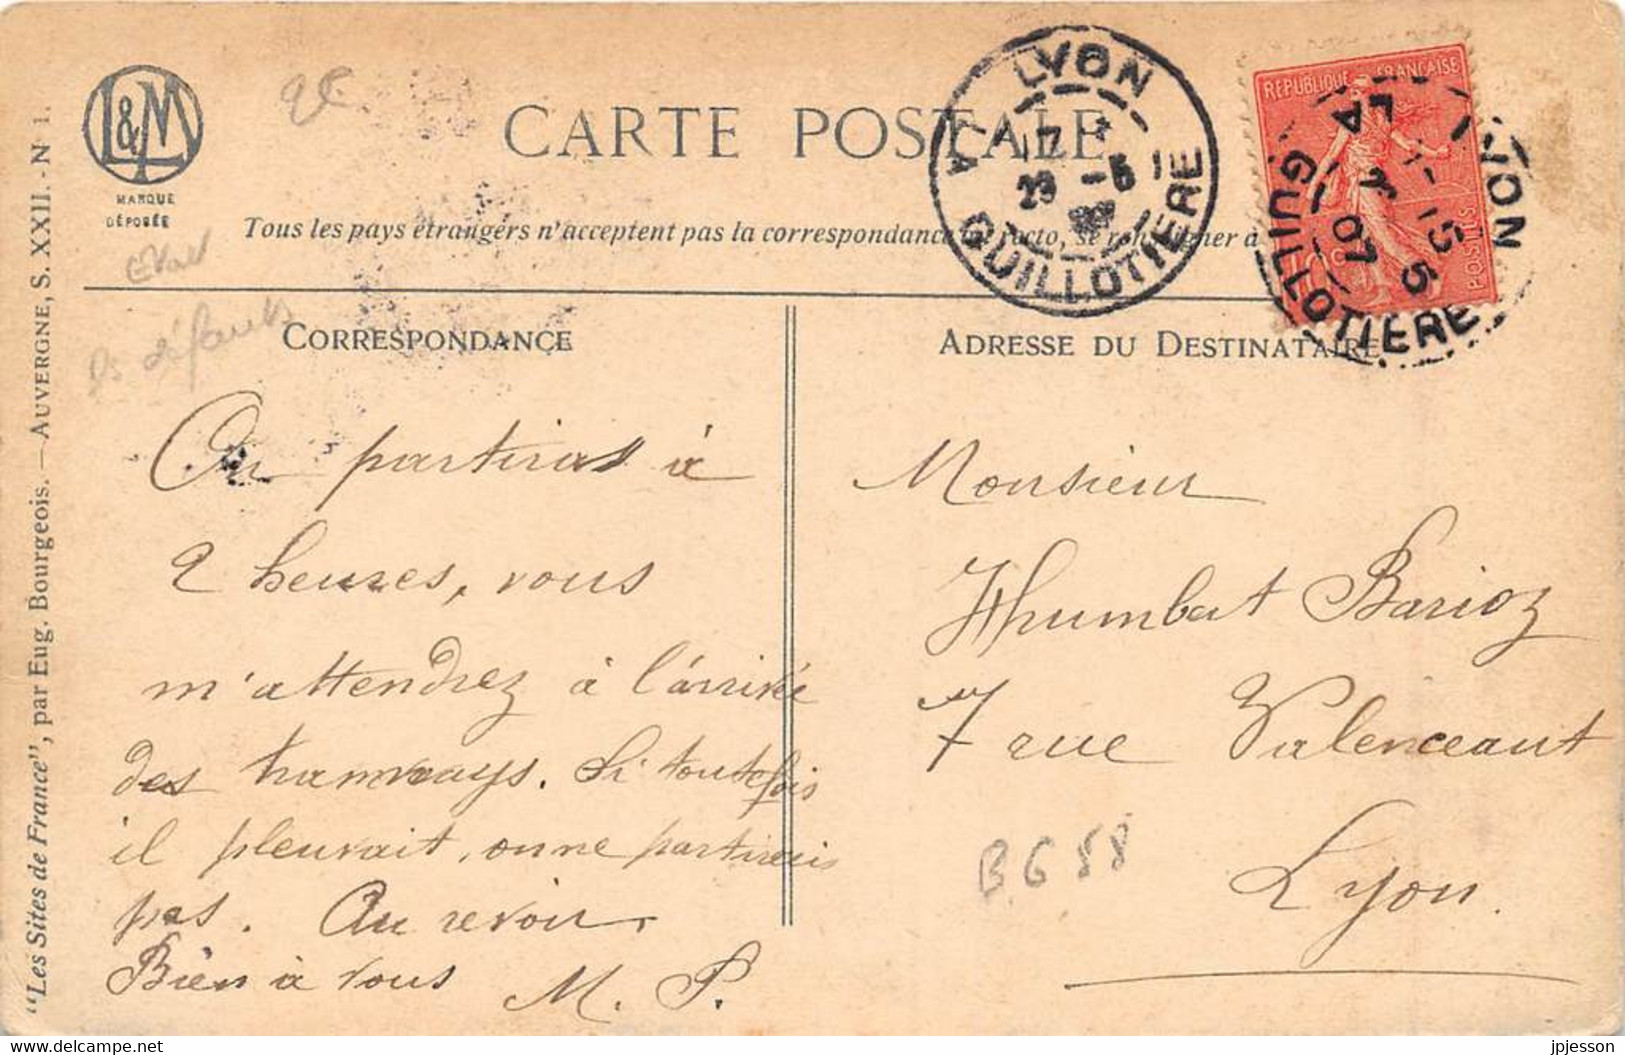 L&M
MARQUE
DÉPOSÉE
CARTE POSTALE
Tous les pays étrangers n'acceptent pas la correspondance au recto, se renseigner à
"Les Sites de France", par Eug. Bourgeois. — AUVERGNE, S. XXII. - N° 1.
LYON
LA GUILLOTIERE
REPUBLIQUE FRANÇAISE
POSTES
LYON
LA GUILLOTIERE
07
CORRESPONDANCE
On partiras à
2 heures, vous
m'attendrez à l'arrivée
des tramways. Si toutefois
il pleuvait, on ne partirais
pas. Au revoir.
Bien à vous
M. P.
ADRESSE DU DESTINATAIRE
Monsieur
Humbert Barioz
7 rue Valenceaut
Lyon.
B G 88
les défauts
delcampe.net
jpjesson